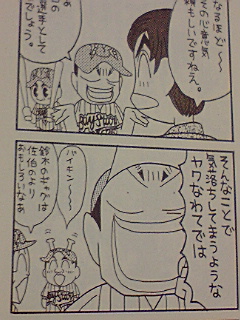 なるほど〜
その心意気
頼もしいですねえ。
選手として
でしょう。
そんなことで
気落ちしてまうような
ヤワなわてでは
バイモン！〜〜
鈴木のギャグは
佐伯のより
おもしろいなあ